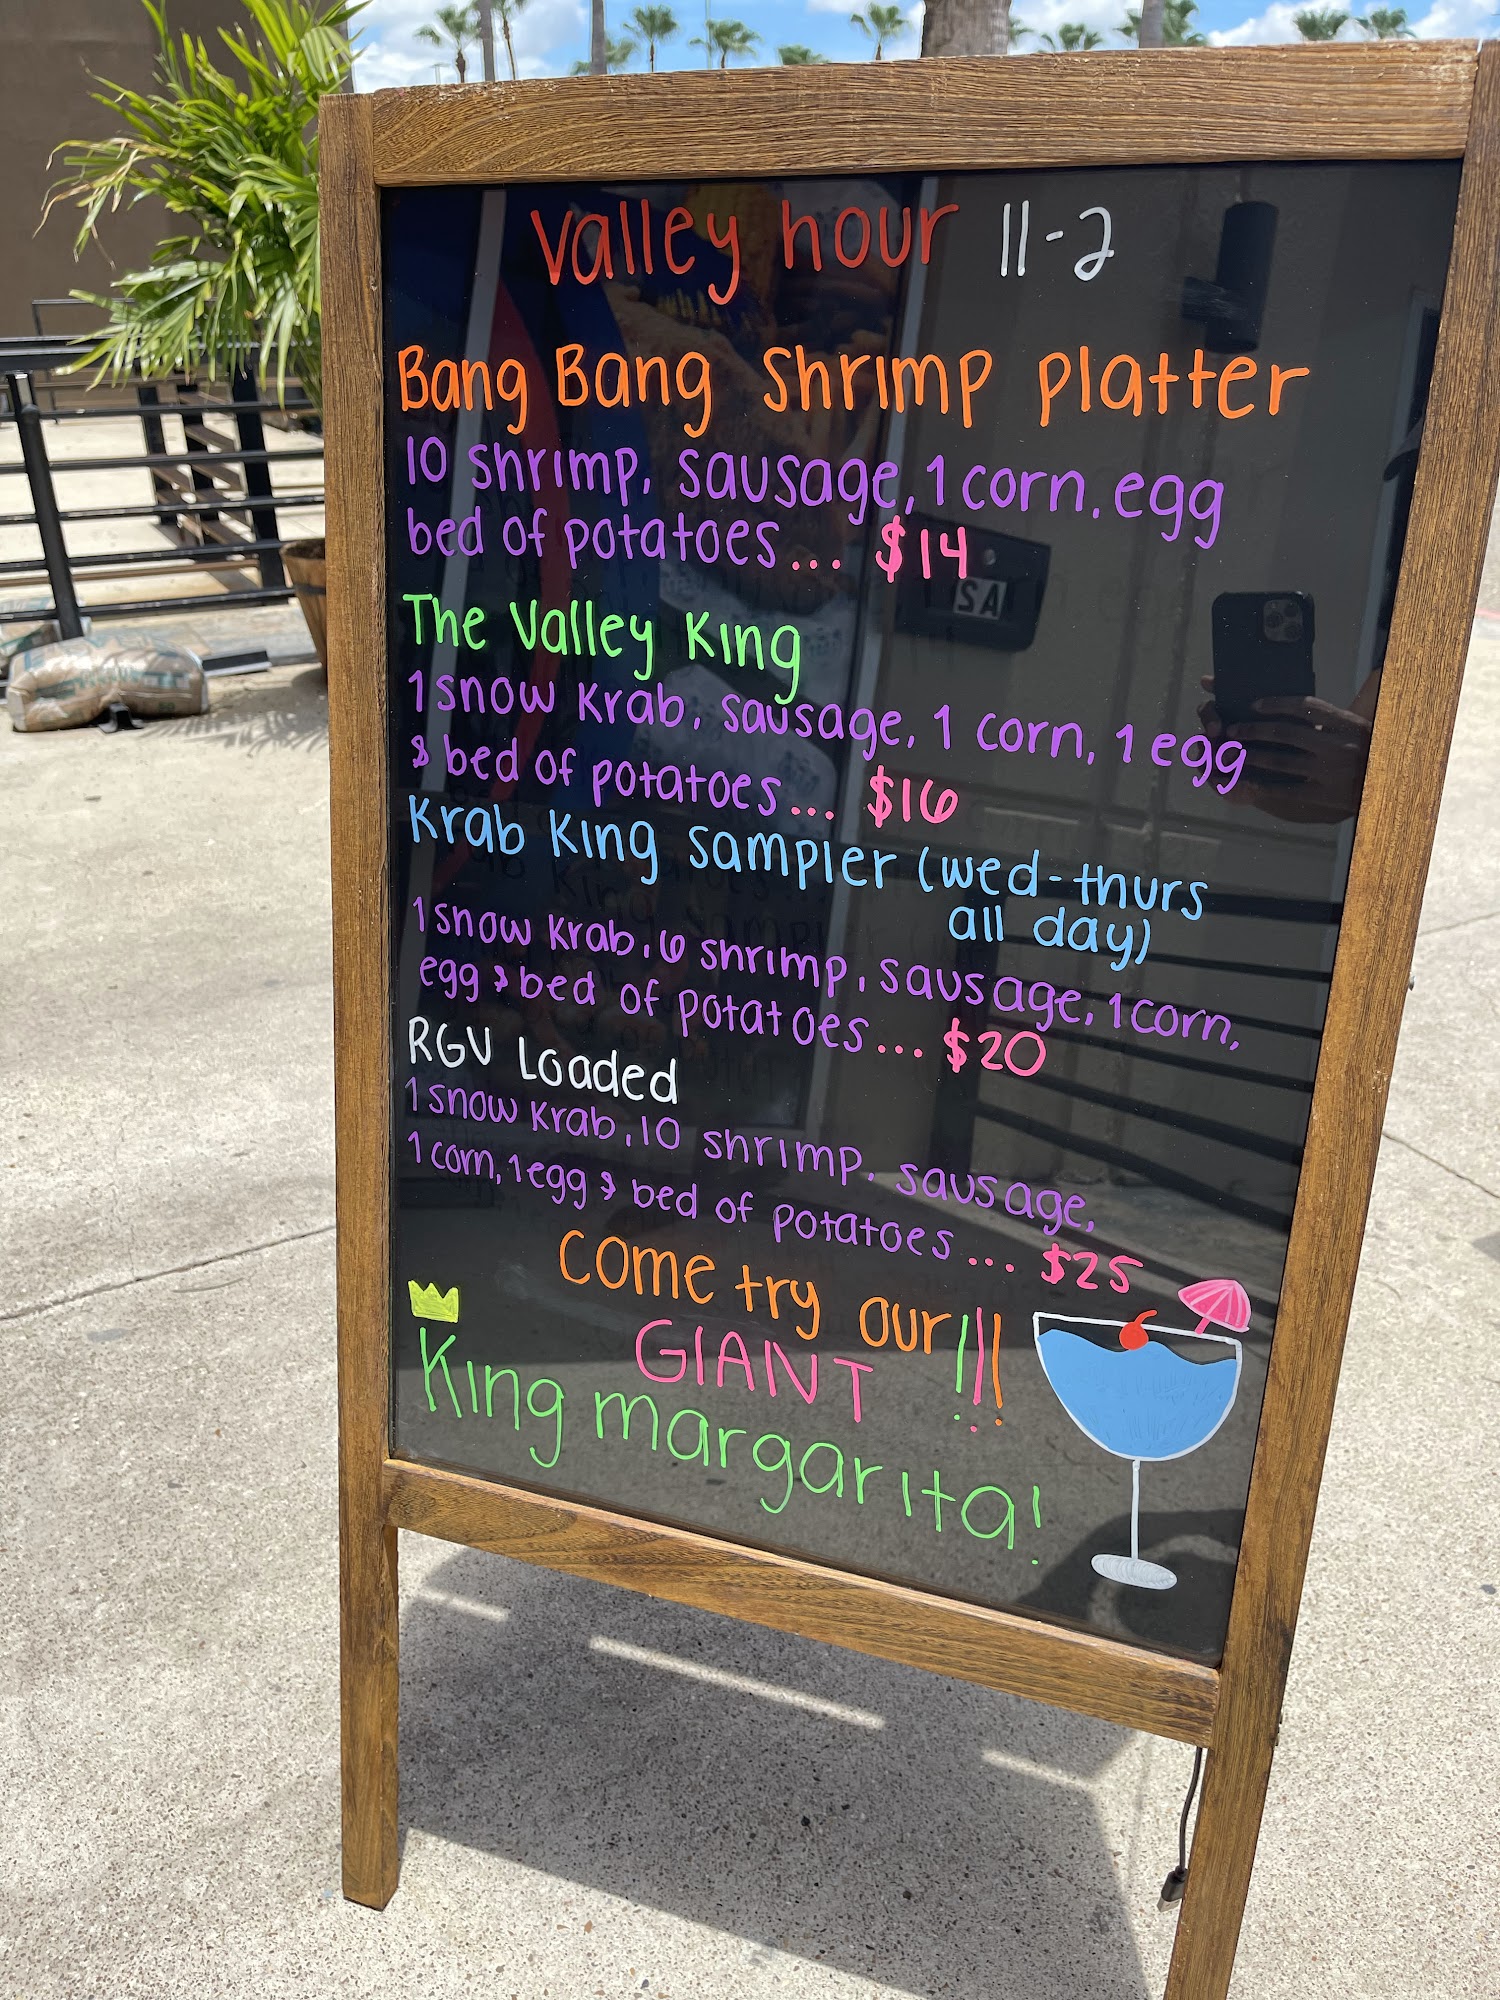 valley hour 11-2
Bang Bang Shrimp Platter
10 shrimp, sausage, 1 corn, egg
bed of potatoes... $14
The Valley King
1 snow Krab, sausage, 1 corn, 1 egg
& bed of potatoes... $16
Krab King sampler (wed-thurs
all day)
1 snow Krab, 6 shrimp, sausage, 1 corn,
egg & bed of potatoes... $20
RGV Loaded
1 snow Krab, 10 shrimp, sausage,
1 corn, 1 egg & bed of potatoes... $25
Come try our!!!
GIANT
King margarita!